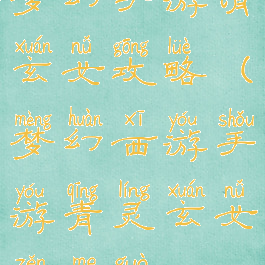 xuán nǚ gōng lüè
玄女攻略(
mèng huàn xī yóu shǒu
梦幻西游手
yóu qīng líng xuán nǚ
游青灵玄女
zěn me guò